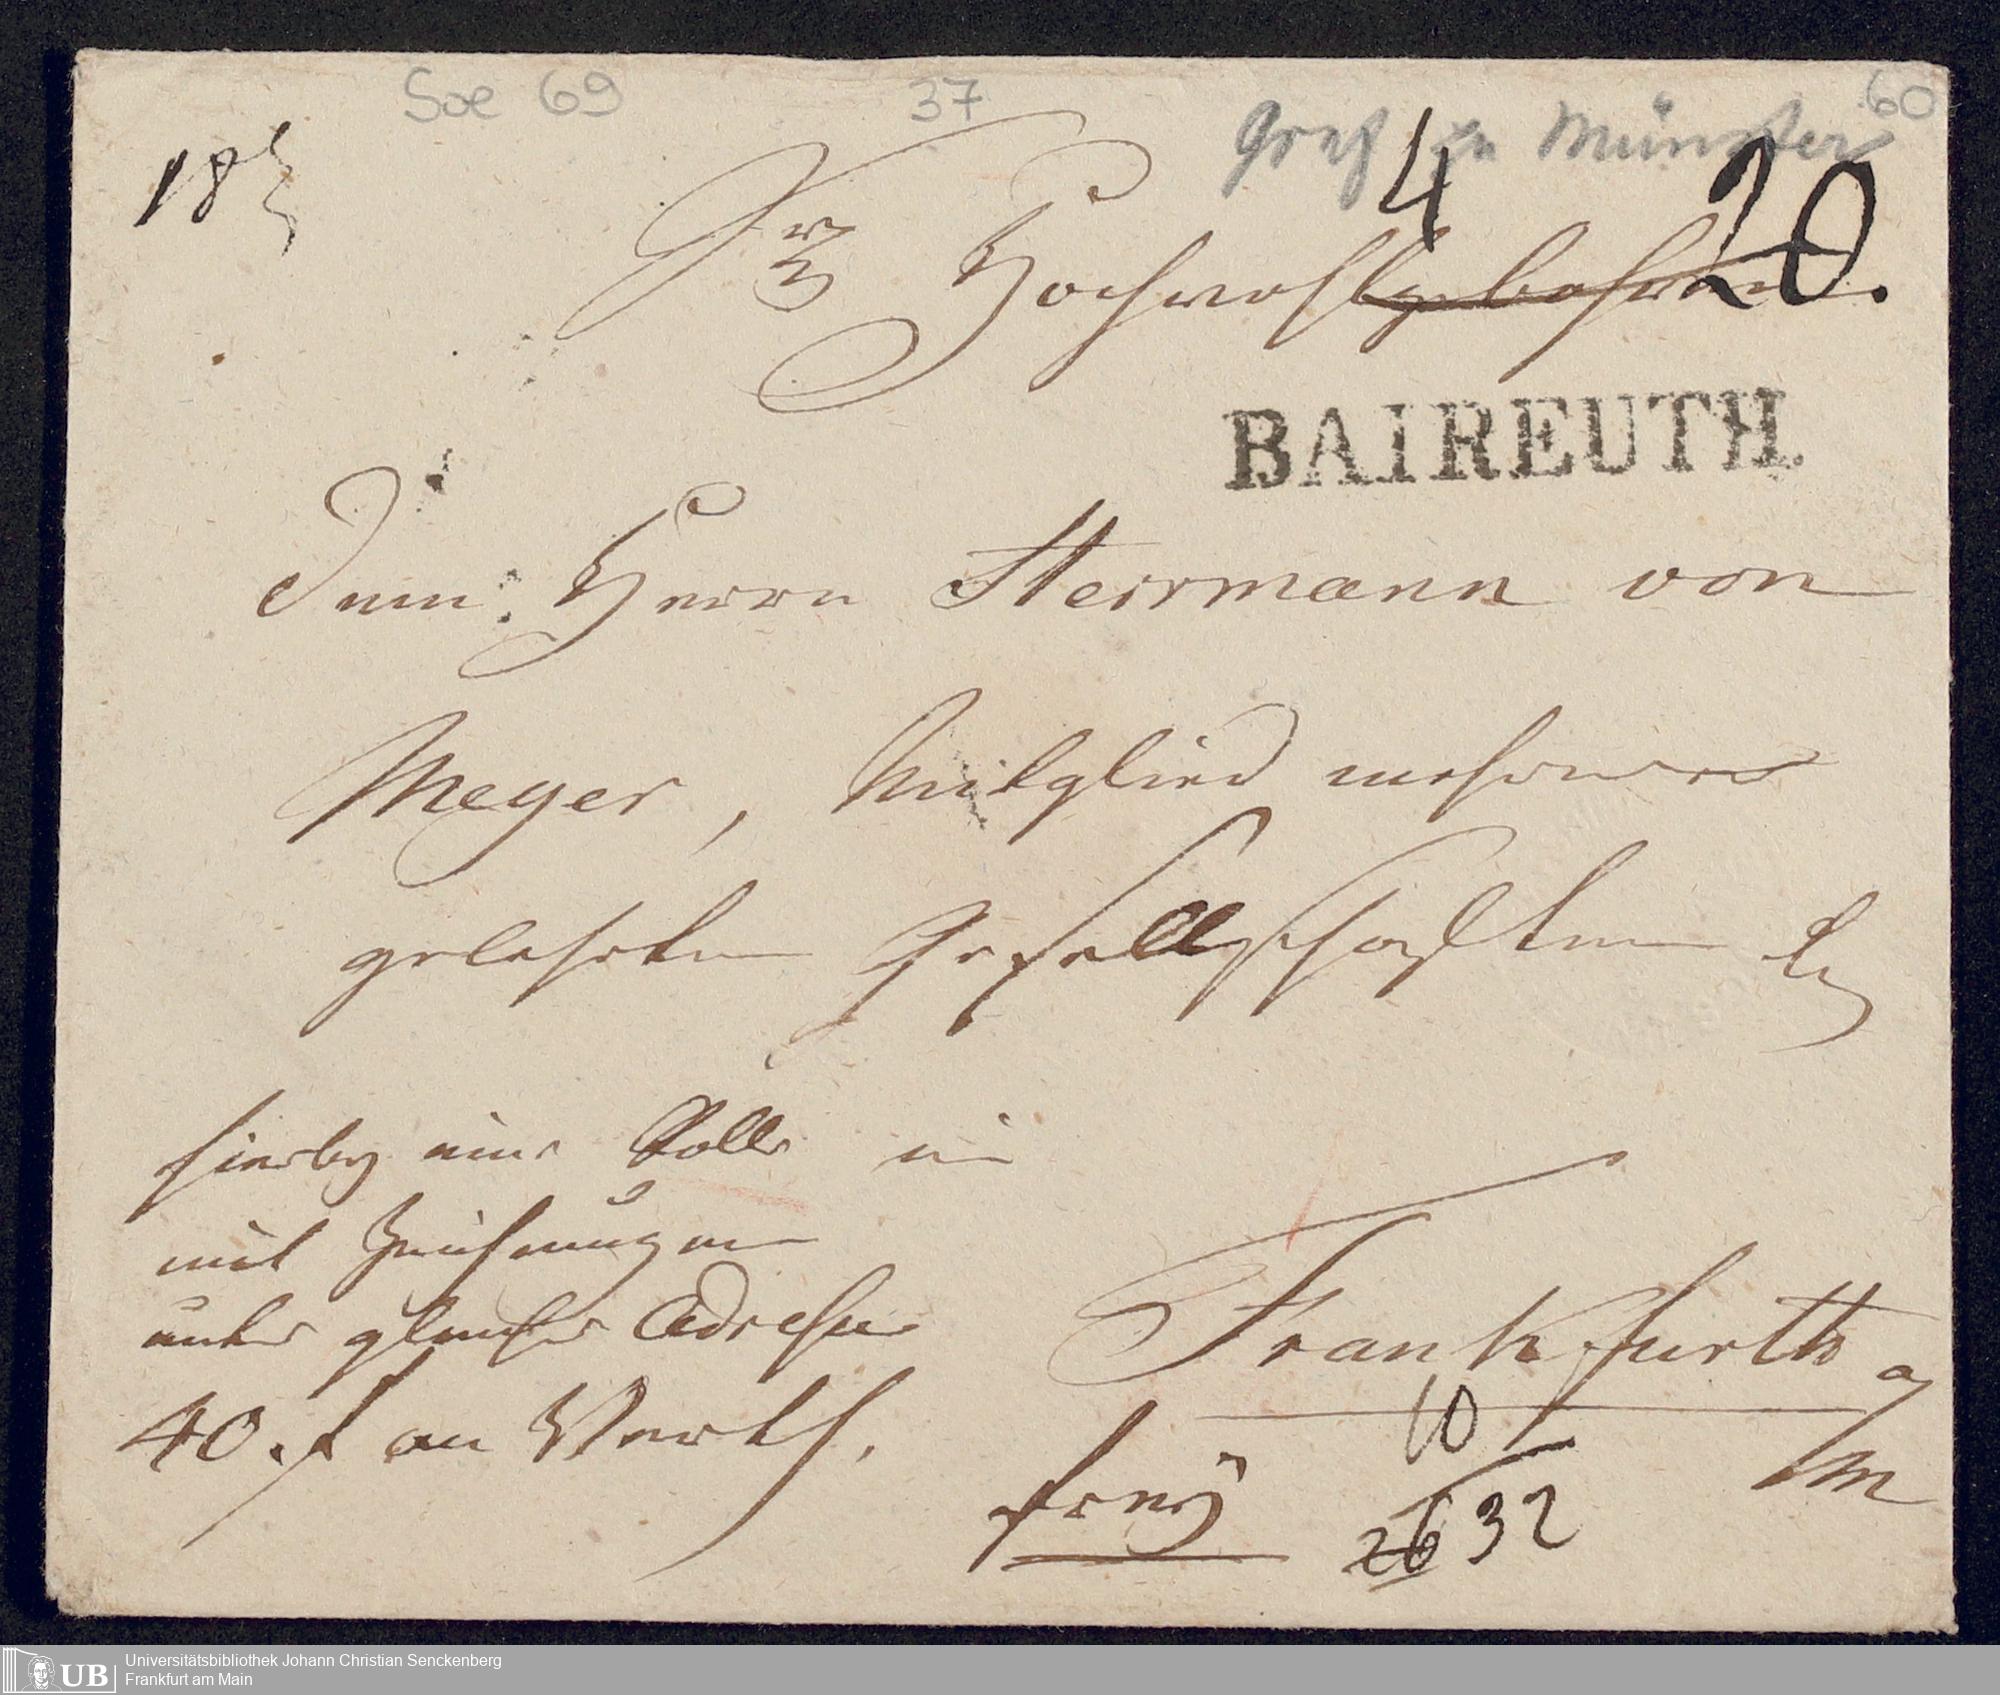 Soe 69
37
60
Graf zu Münster
18
4
20.
Sr Hochwohlgebohren
BAIREUTH.
Dem Herrn Herrmann von
Meyer, Mitglied mehrerer
gelehrten Gesellschaften
hierbey eine Rolle
mit Zeichnungen
unter gleicher Adresse
40. f an Werth.
Frankfurth a/m
10
frey
26 32
UB Universitätsbibliothek Johann Christian Senckenberg
Frankfurt am Main